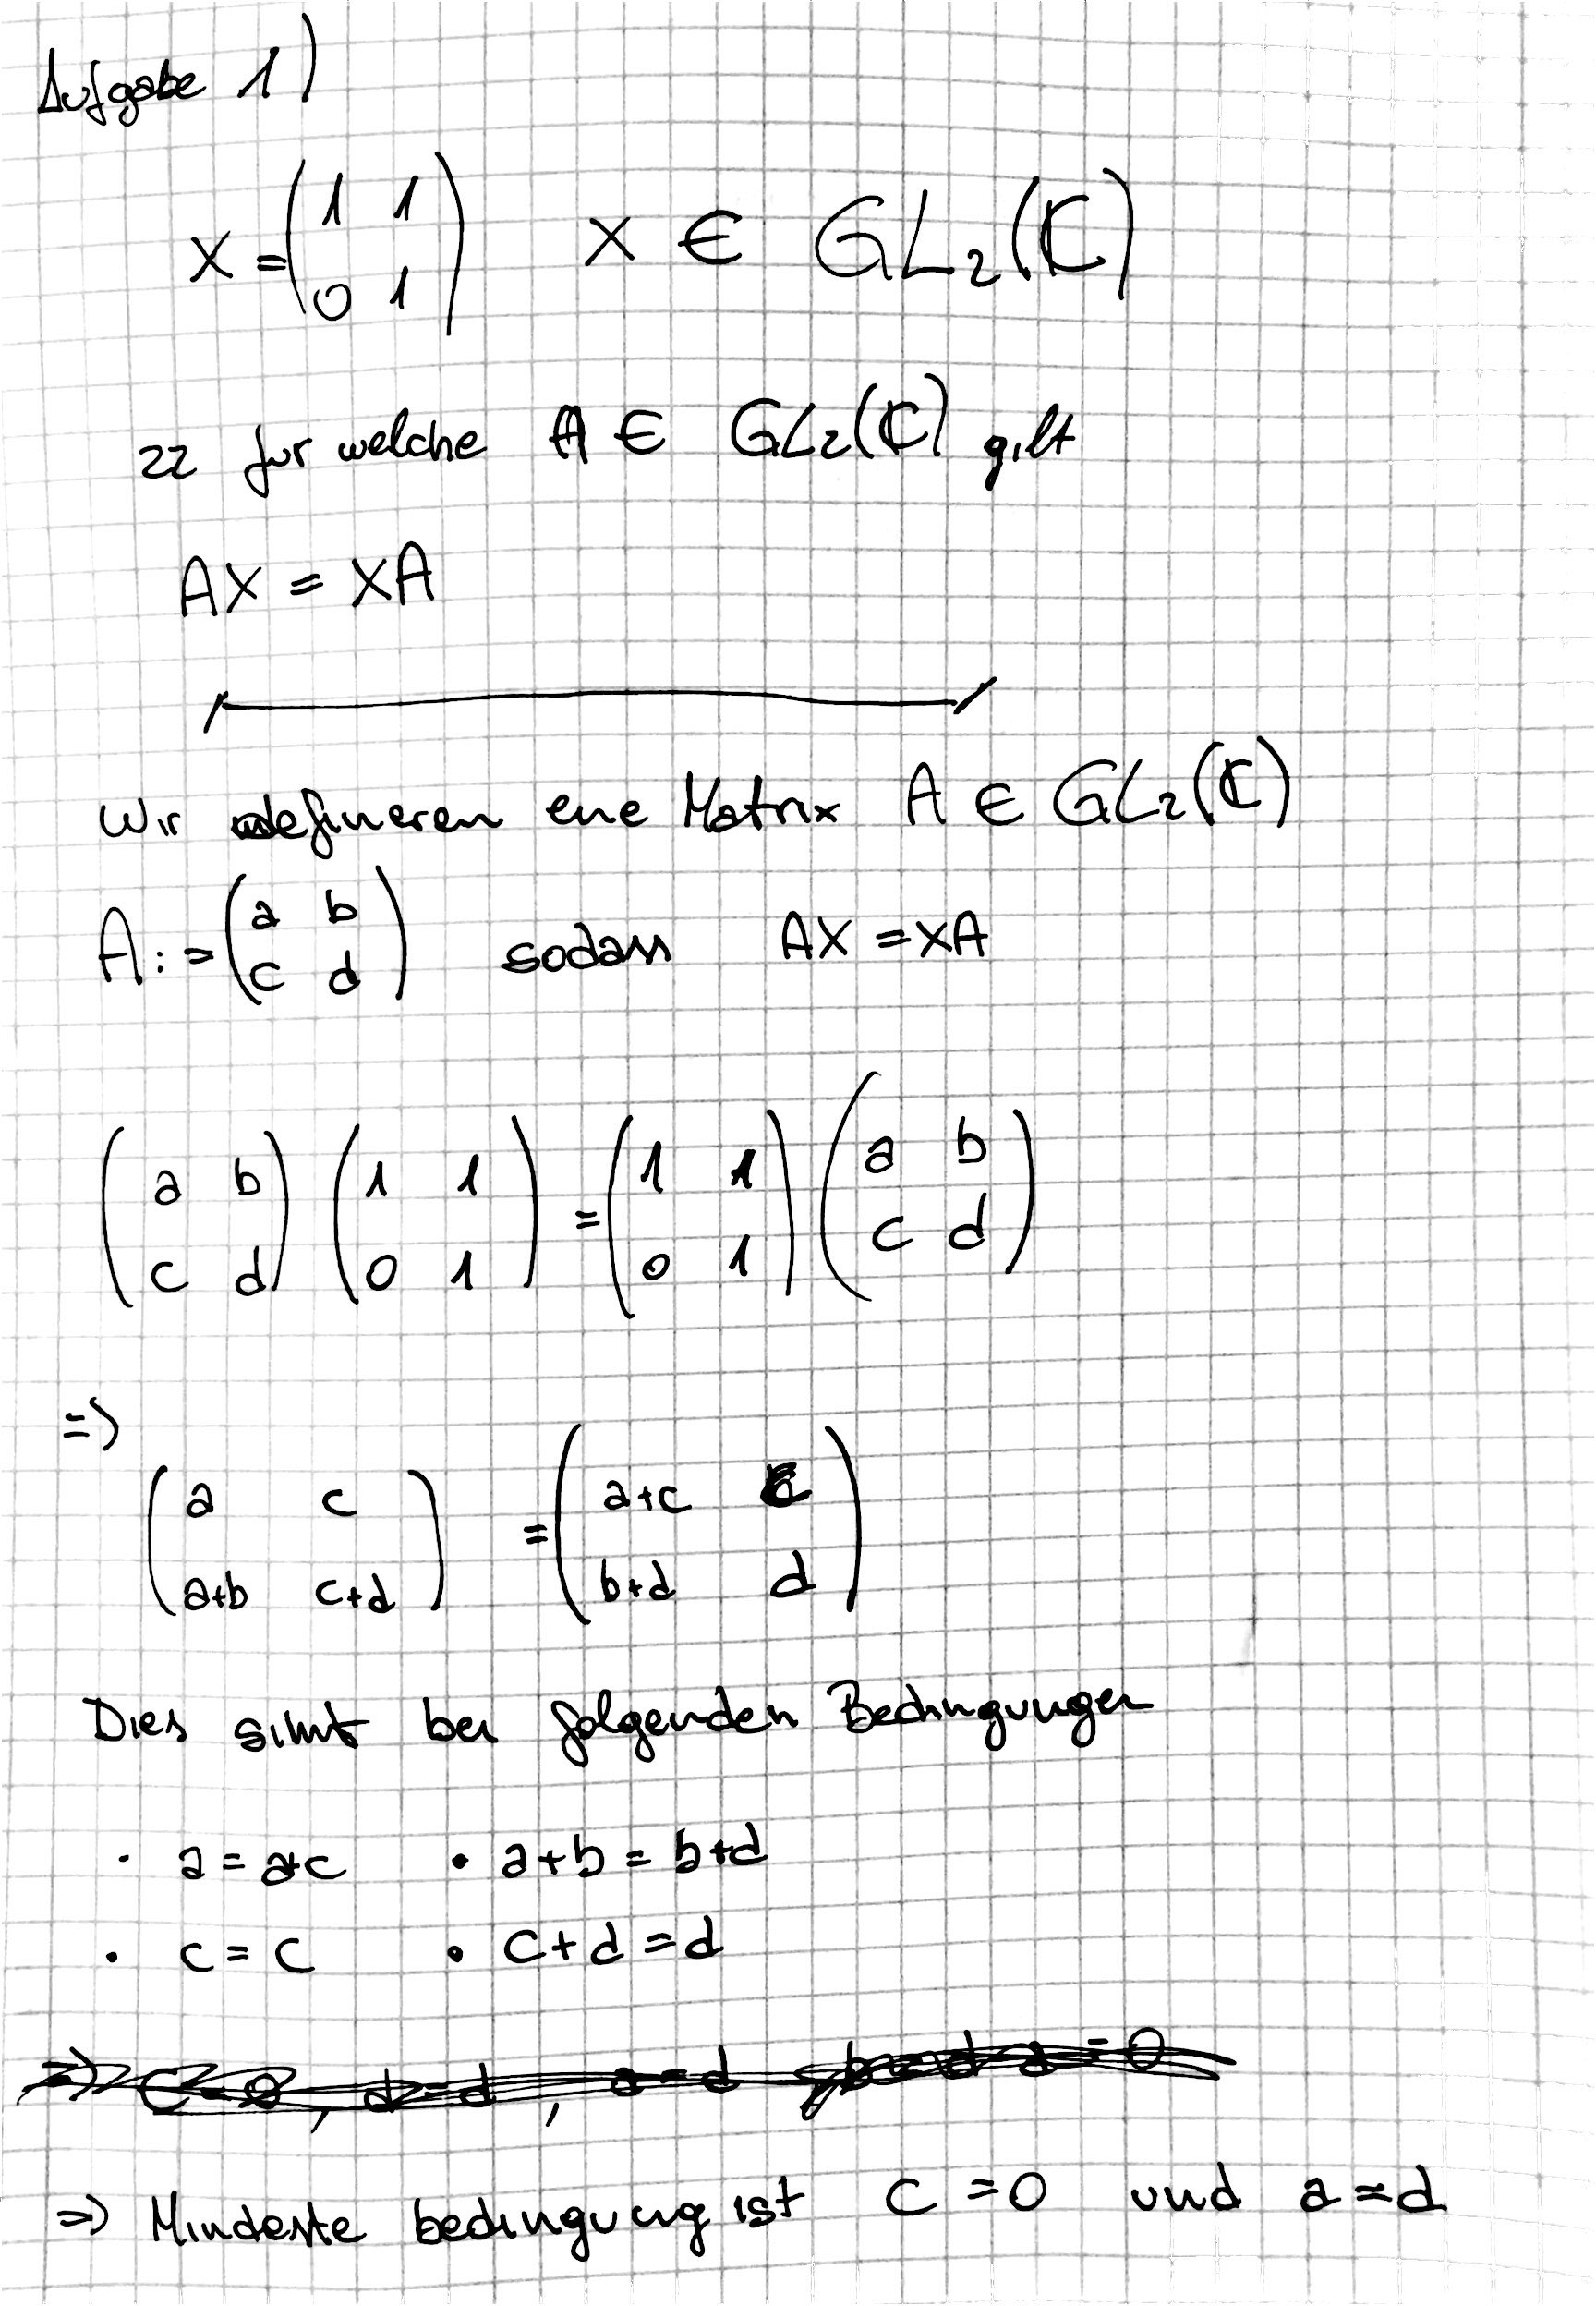 Aufgabe 1)
X = ( 1 1 X ∈ GL₂(ℂ)
0 1 )
zz für welche A ∈ GL₂(ℂ) gilt
AX = XA
Wir definieren eine Matrix A ∈ GL₂(ℂ)
A := ( a b sodass AX = XA
c d )
( a b ) ( 1 1 ) = ( 1 1 ) ( a b )
( c d ) ( 0 1 ) ( 0 1 ) ( c d )
=>
( a c ) = ( a+c c )
( a+b c+d ) ( b+d d )
Dies simt bei folgenden Bedingungen
· a = a+c • a+b = b+d
• c = c • c+d = d
=> Mindeste bedingung ist c = 0 und a = d